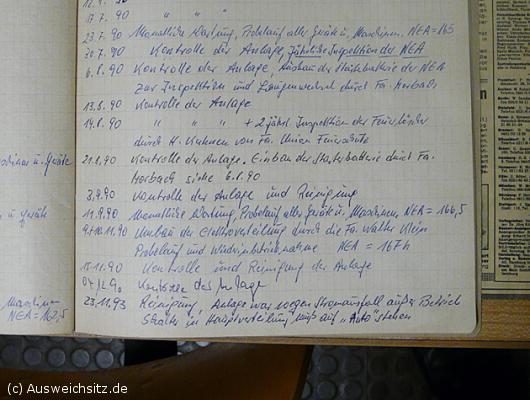 17.7.90 " " "
23.7.90 Monatliche Wartung, Probelauf aller Geräte u. Maschinen, NEA=165
30.7.90 Kontrolle der Anlage, Jährliche Inspektion der NEA
6.8.90 Kontrolle der Anlage, Ausbau der Starterbatterie der NEA
zur Inspektion und Laugenwechsel durch Fa. Horbach
13.8.90 Kontrolle der Anlage
14.8.90 " " " + 2 jährl. Inspektion der Feuerlöscher
durch H. von Fa. Union Feuerschutz
21.8.90 Kontrolle der Anlage. Einbau der Starterbatterie durch Fa.
Horbach siehe 6.8.90
3.9.90 Kontrolle der Anlage und Reinigung
11.9.90 Monatliche Wartung, Probelauf aller Geräte u. Maschinen, NEA = 166,5
9.+10.11.90 Umbau der Elektroverteilung durch die Fa. Walter Klein
Probelauf und Wiederinbetriebnahme NEA = 167 h
15.11.90 Kontrolle und Reinigung der Anlage
04.12.90 Kontrolle der Anlage
23.11.93 Reinigung, Anlage war wegen Stromausfall außer Betrieb
Schalter in Hauptverteilung muß auf „Auto" stehen
Maschinen u. Geräte
u. Geräte
Maschinen
NEA = 162,5
(c) Ausweichsitz.de